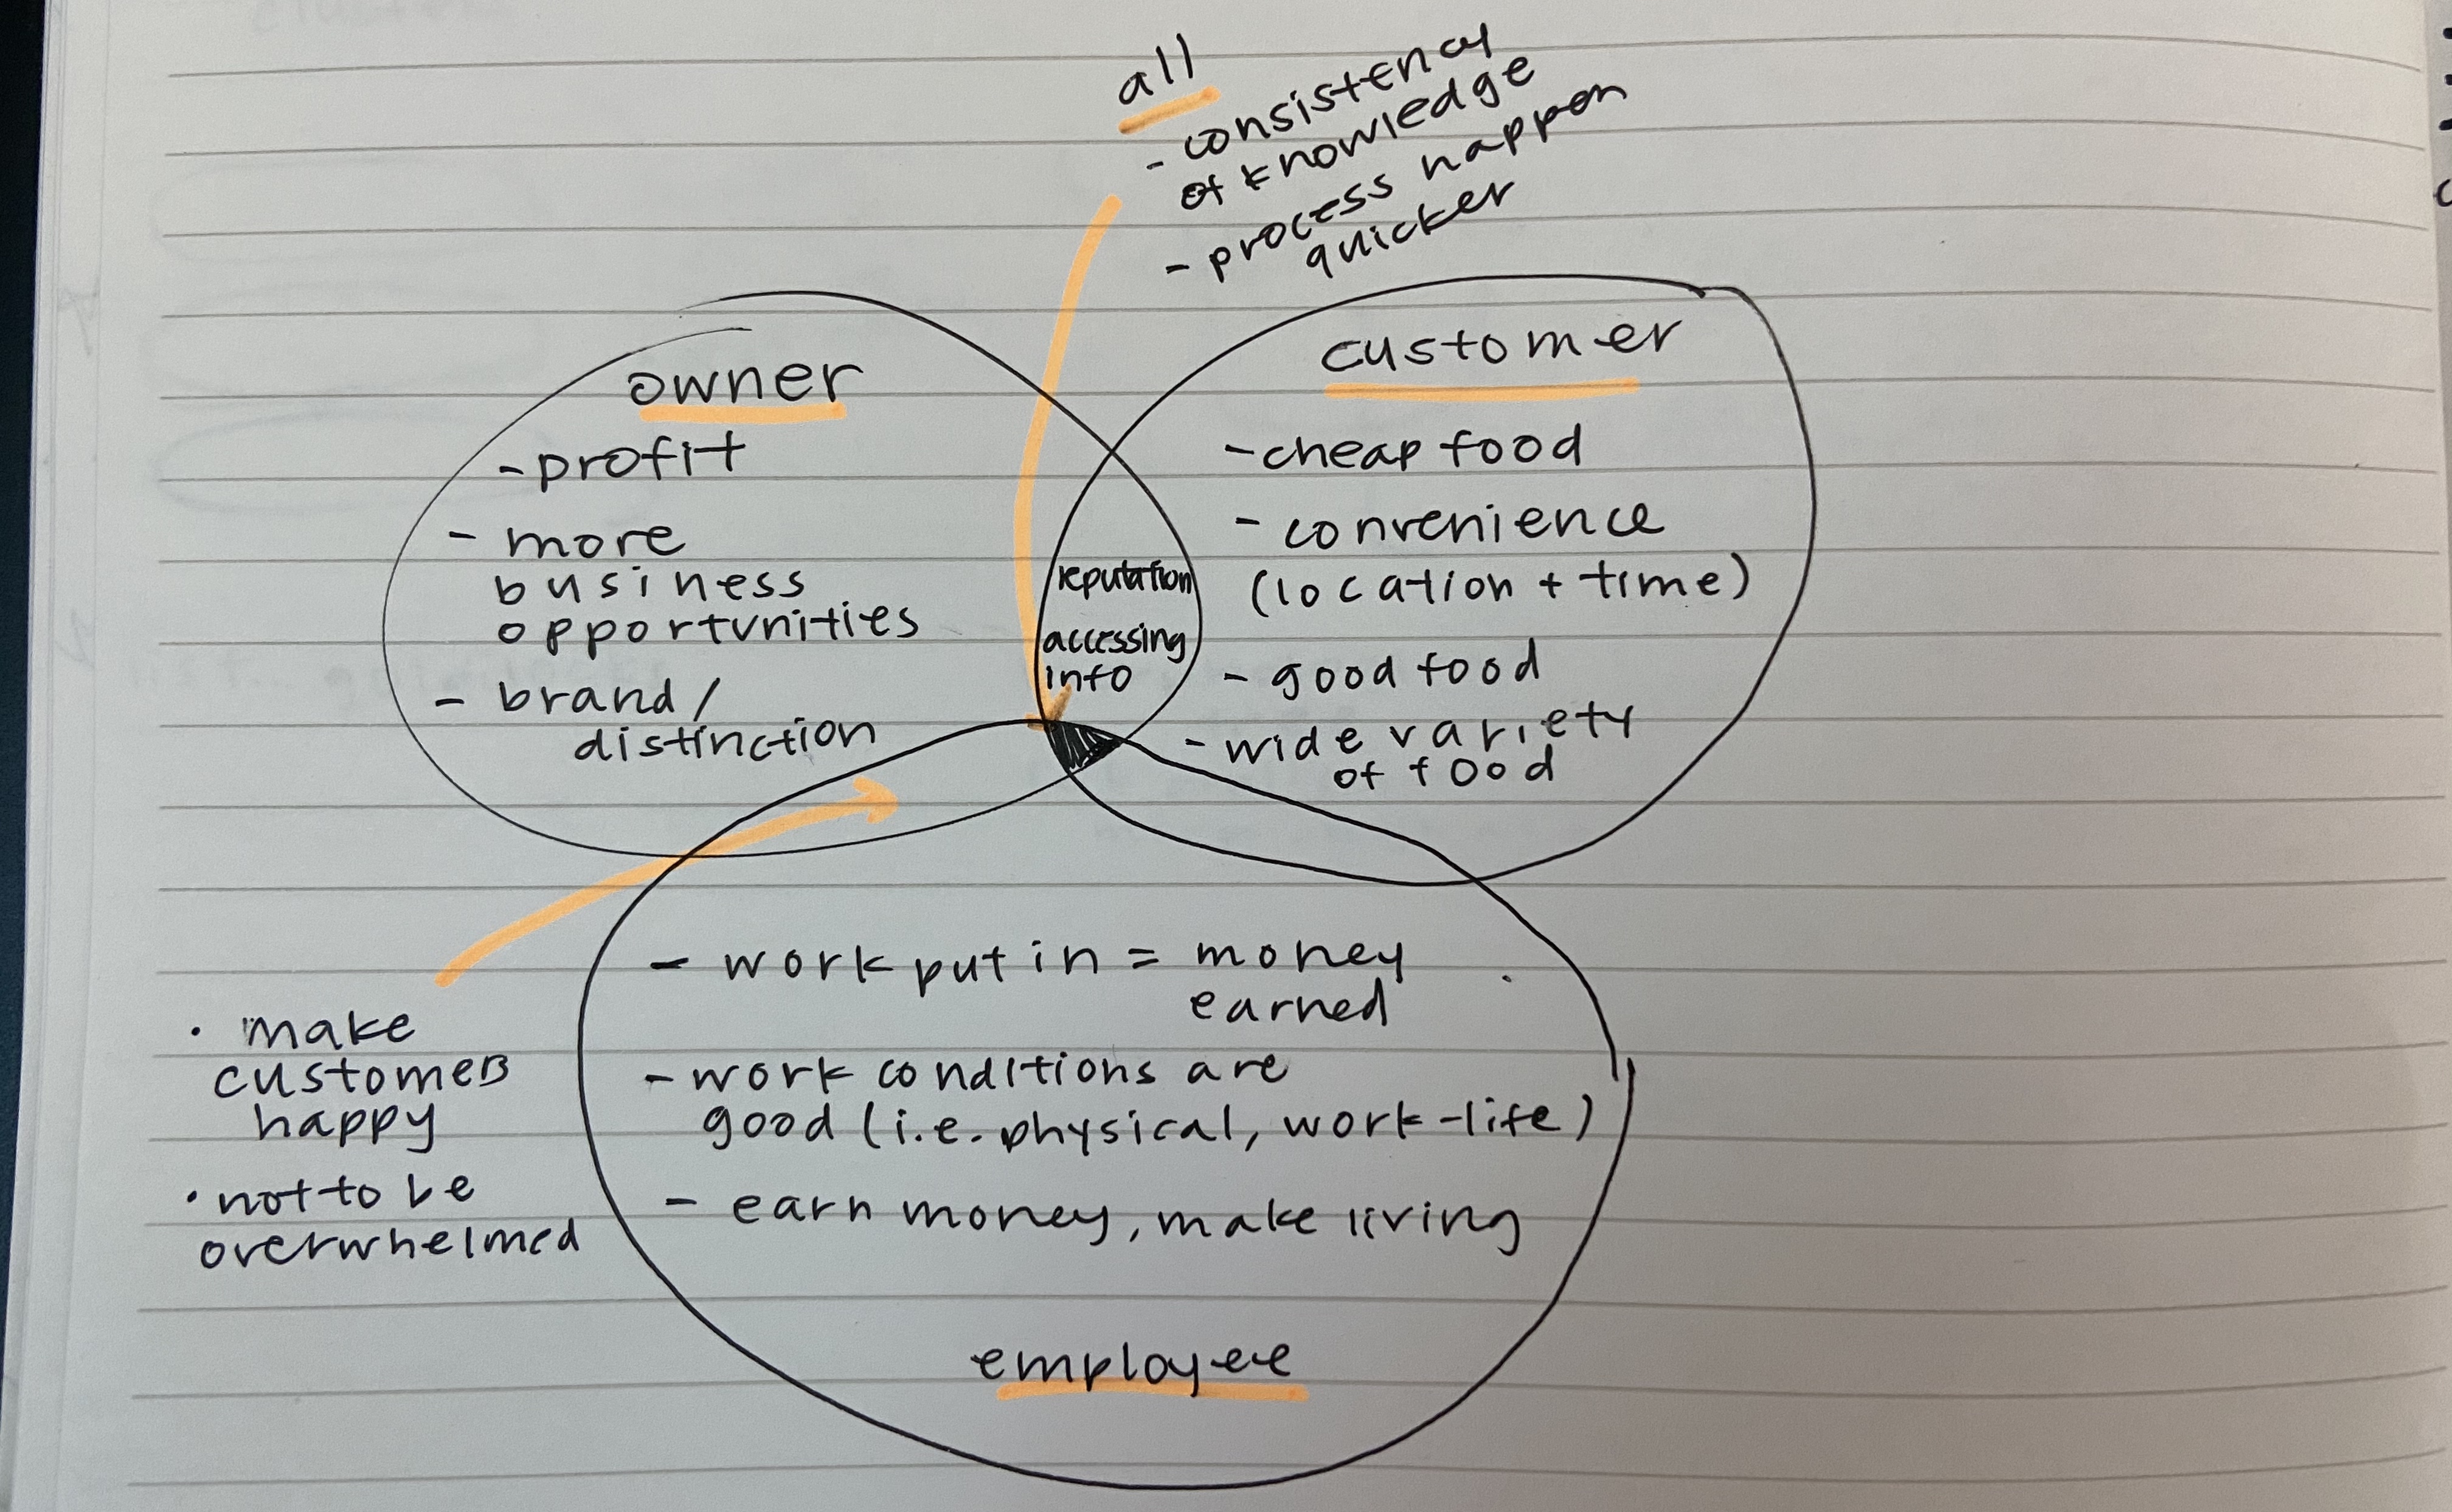 all
- consistency
of knowledge
- process happen
quicker
owner
- profit
- more
business
opportunities
- brand/
distinction
reputation
accessing
info
customer
- cheap food
- convenience
(location + time)
- good food
- wide variety
of food
• make
customers
happy
• not to be
overwhelmed
- work put in = money
earned
- work conditions are
good (i.e. physical, work-life)
- earn money, make living
employee